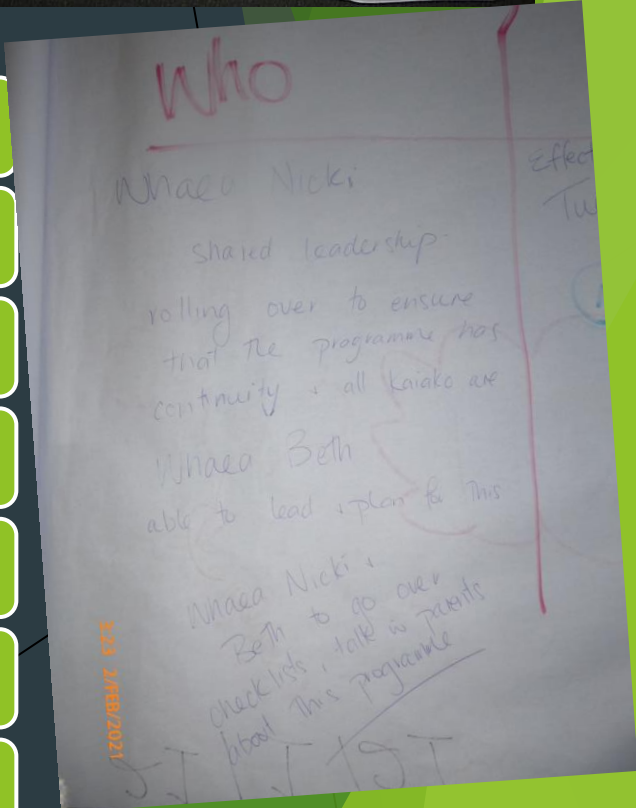 Who
Whaea Nicki
shared leadership
rolling over to ensure
that the programme has
continuity + all kaiako are
Whaea Beth
able to lead + plan for this
Whaea Nicki +
Beth to go over
checklists, talk to parents
about this programme
Effect
Tu
2/FEB/2021